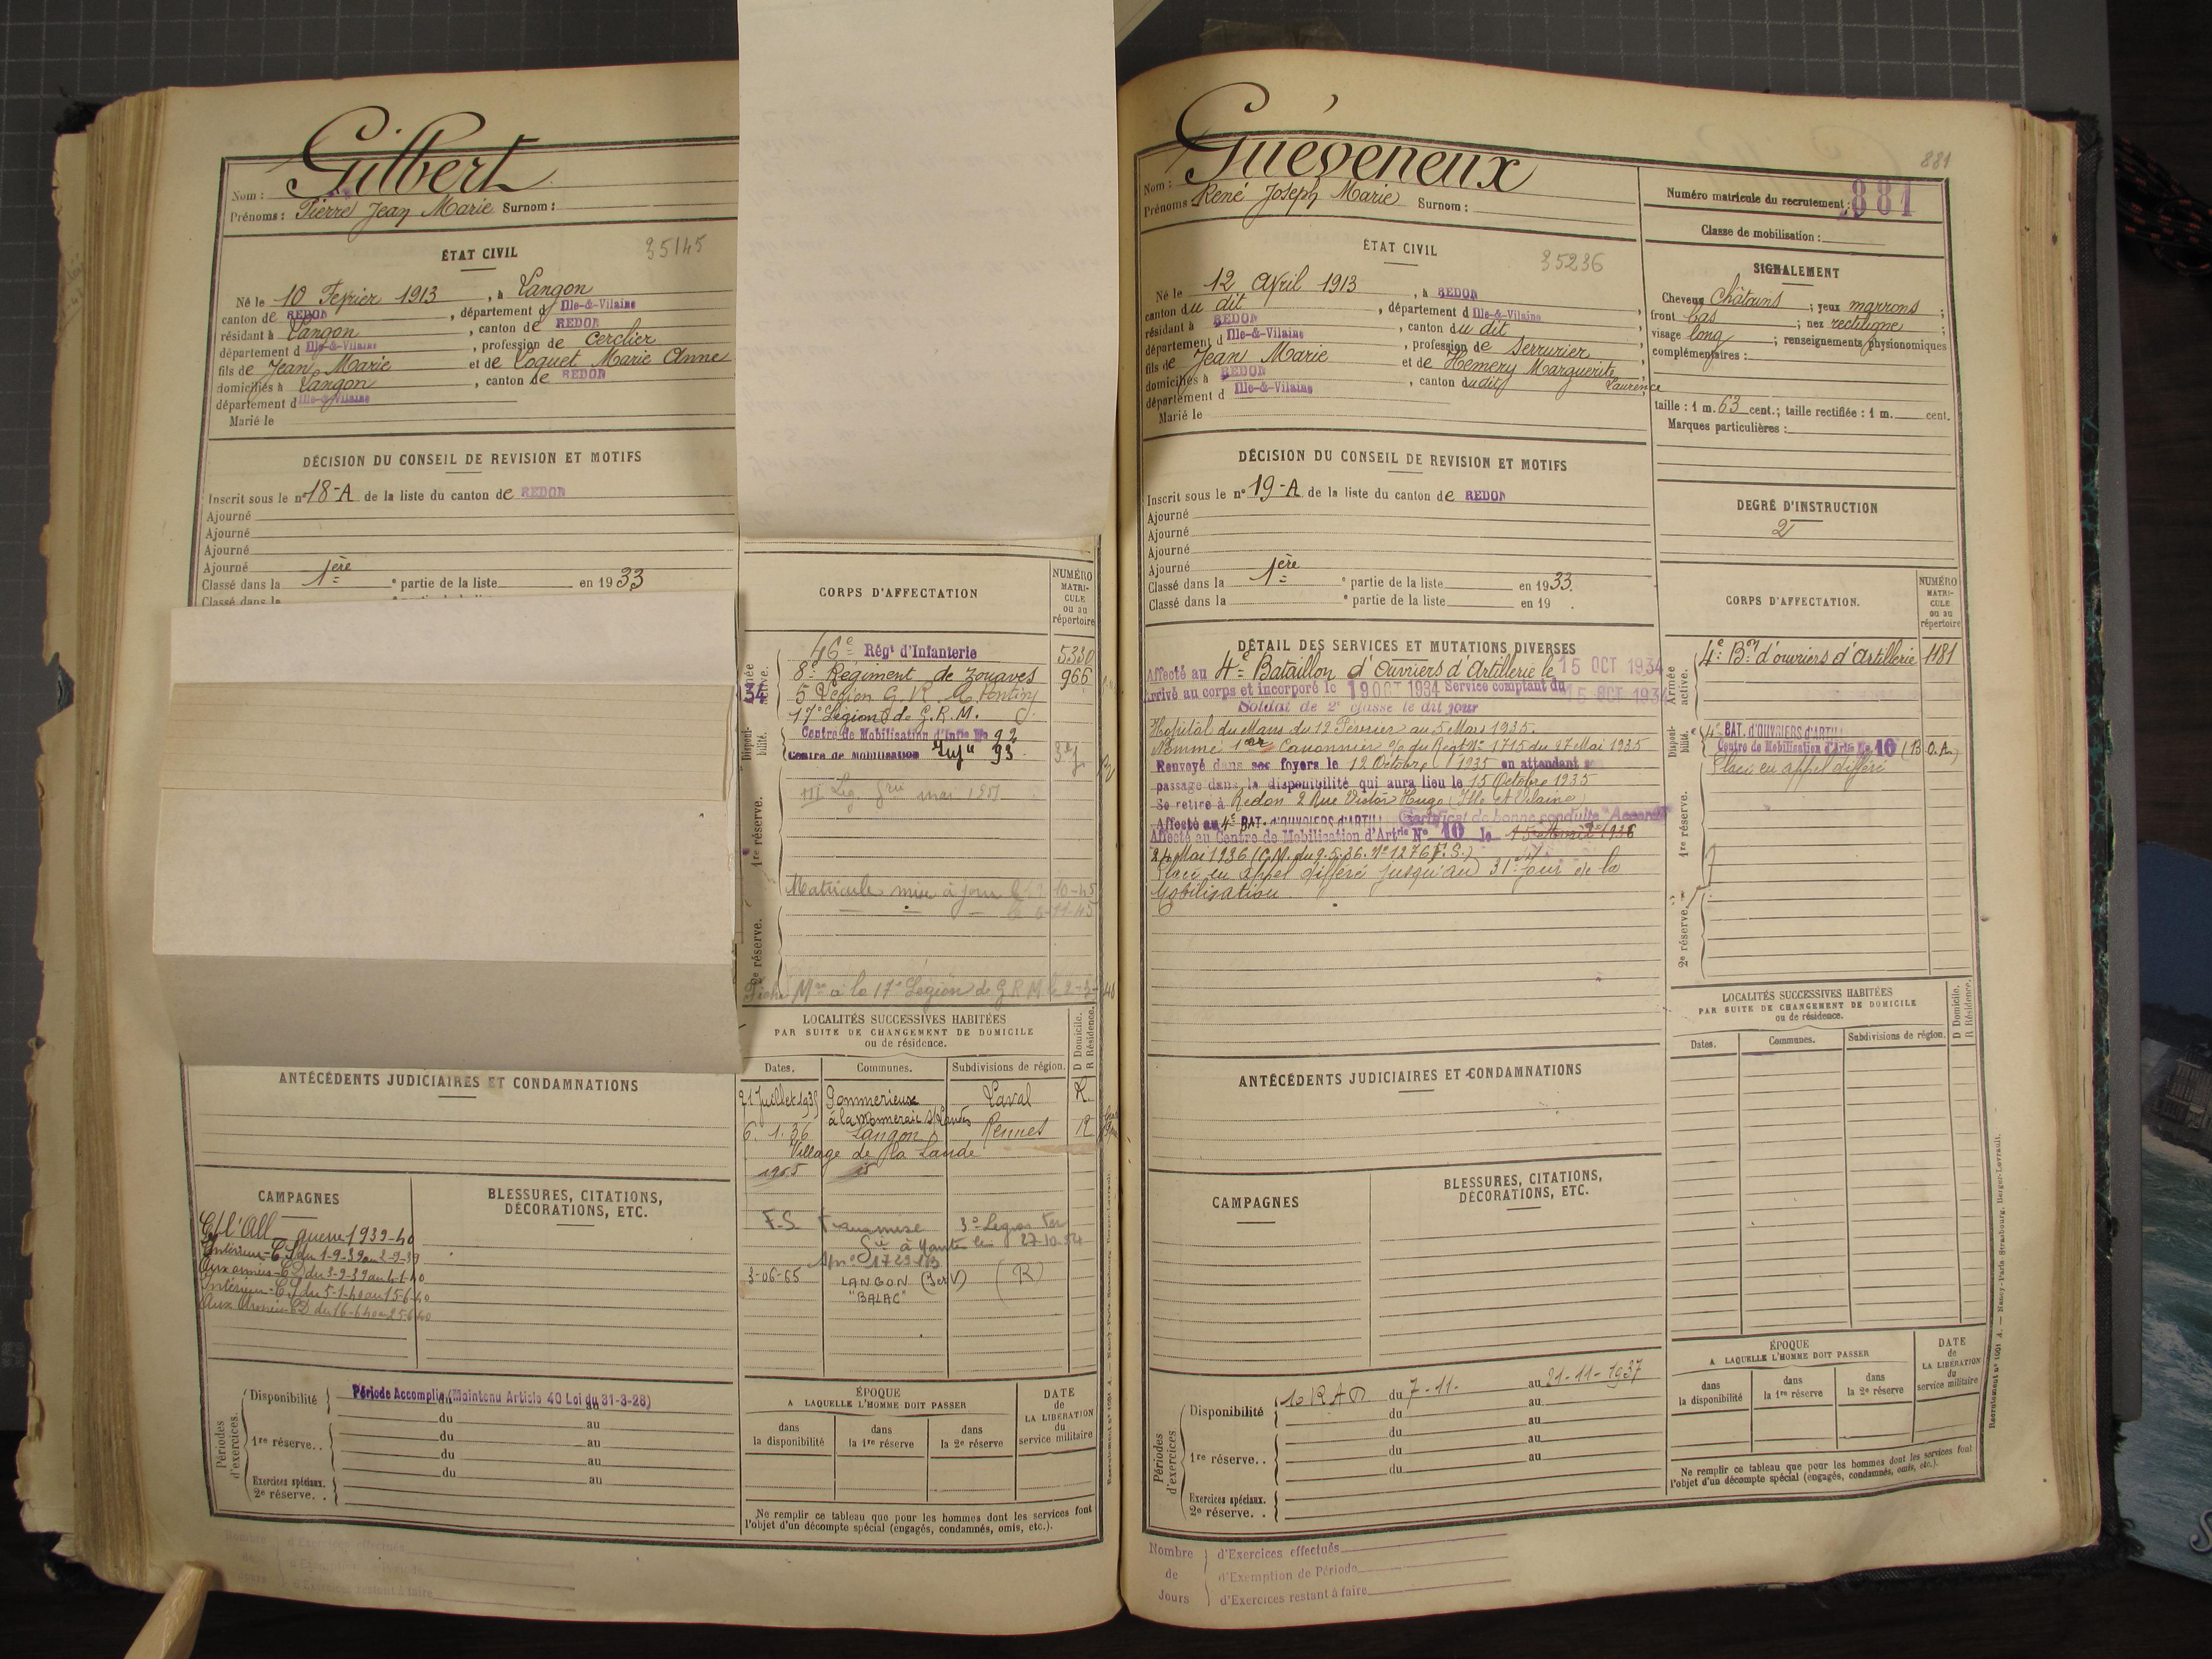 Gilbert
Nom :
Prénoms : Pierre Jean Marie Surnom :
ÉTAT CIVIL
35145
Né le 10 Février 1913, à Langon
canton de REDON, département d Ille-&-Vilaine
résidant à Langon, canton de REDON
département d Ille-&-Vilaine, profession de cerclier
fils de Jean Marie et de Loquet Marie Anne
domiciliés à Langon, canton de REDON
département d Ille-&-Vilaine
Marié le
DÉCISION DU CONSEIL DE REVISION ET MOTIFS
Inscrit sous le n° 18-A de la liste du canton de REDON
Ajourné
Ajourné
Ajourné
Ajourné
Classé dans la 1ère e partie de la liste en 1933
Classé dans la
ANTÉCÉDENTS JUDICIAIRES ET CONDAMNATIONS
CAMPAGNES
C/l'All guerre 1939-40
Intérieur-CS du 1-9-39 au 2-9-39
Aux armées-CD du 3-9-39 au 4-1-40
Intérieur-CS du 5-1-40 au 15-6-40
Aux Armées-CD du 16-6-40 au 25-6-40
BLESSURES, CITATIONS,
DÉCORATIONS, ETC.
Périodes d'exercices.
Disponibilité
Période Accomplie (Maintenu Article 40 Loi du 31-3-28)
du au
du au
1re réserve.. du au
du au
du au
Exercices spéciaux.
2e réserve. .
Nombre de Jours
d'Exercices effectués
d'Exemption de Période
d'Exercices restant à faire
CORPS D'AFFECTATION
NUMÉRO
MATRI-
CULE
ou au
répertoire
Armée active.
34
46e Régt d'Infanterie 5330
8e Régiment de Zouaves 966
5 Légion G R M Pontivy
17e Légion de G.R.M.
Disponibilité.
Centre de Mobilisation d'Infie No 92
Centre de Mobilisation Infie 93
1re réserve.
III Leg Grie mai 1951
Matricule mise à jour le 10-45
le 6-11-45
2e réserve.
Fiche Mre à la 17e Légion de G R M le 2-3-46
LOCALITÉS SUCCESSIVES HABITÉES
PAR SUITE DE CHANGEMENT DE DOMICILE
ou de résidence.
D Domicile.
R Résidence.
Dates. Communes. Subdivisions de région.
21 Juillet 1935 Pommerieux Laval R.
6. 1. 36 Langon Rennes R
Village de la Lande
1955
F.S. transmise 3e Légion
à Nantes le 27-10-54
3-06-65 LANGON (I et V) (R)
"BALAC"
ÉPOQUE
A LAQUELLE L'HOMME DOIT PASSER
dans la disponibilité
dans la 1re réserve
dans la 2e réserve
DATE
de
LA LIBÉRATION
du
service militaire
Ne remplir ce tableau que pour les hommes dont les services font
l'objet d'un décompte spécial (engagés, condamnés, omis, etc.).
Guéveneux
Nom :
Prénoms René Joseph Marie Surnom :
ÉTAT CIVIL
35236
Né le 12 Avril 1913, à REDON
canton du dit, département d Ille-&-Vilaine,
résidant à REDON, canton du dit,
département d Ille-&-Vilaine, profession de Serrurier,
fils de Jean Marie et de Hemery Marguerite Laurence,
domiciliés à REDON, canton du dit,
département d Ille-&-Vilaine
Marié le
DÉCISION DU CONSEIL DE REVISION ET MOTIFS
Inscrit sous le n° 19-A de la liste du canton de REDON
Ajourné
Ajourné
Ajourné
Ajourné
Classé dans la 1ère e partie de la liste en 1933.
Classé dans la e partie de la liste en 19 .
DÉTAIL DES SERVICES ET MUTATIONS DIVERSES
Affecté au 4e Bataillon d'Ouvriers d'Artillerie le 15 OCT 1934
Arrivé au corps et incorporé le 19 OCT 1934 Service comptant du 15 OCT 1934
Soldat de 2e classe le dit jour
Hôpital du Mans du 12 Février au 5 Mars 1935.
Nommé 1er Canonnier O/ du Régt N° 1715 du 27 Mai 1935
Renvoyé dans ses foyers le 12 Octobre 1935 en attendant
passage dans la disponibilité qui aura lieu le 15 Octobre 1935
Se retire à Redon 2 Rue Victor Hugo (Ille et Vilaine)
Certificat de bonne conduite "Accordé"
Affecté au 4e BAT. D'OUVRIERS D'ARTILL
Affecté au Centre de Mobilisation d'Artrie N° 10 le 15 Avril 1936
24 Mai 1936 (C.M. du 9.5.36. N° 1276 F.S.)
Placé en appel différé jusqu'au 31e jour de la
Mobilisation.
ANTÉCÉDENTS JUDICIAIRES ET CONDAMNATIONS
CAMPAGNES
BLESSURES, CITATIONS,
DÉCORATIONS, ETC.
Périodes d'exercices
Disponibilité 10 R A D du 7-11. au 21-11-1937
du au
du au
1re réserve. . du au
du au
Exercices spéciaux.
2e réserve. .
Nombre de Jours
d'Exercices effectués
d'Exemption de Période
d'Exercices restant à faire
881
Numéro matricule du recrutement : 881
Classe de mobilisation :
SIGNALEMENT
Cheveux châtains ; yeux marrons ;
front bas ; nez rectiligne ;
visage long ; renseignements physionomiques
complémentaires :
taille : 1 m. 63 cent.; taille rectifiée : 1 m. cent.
Marques particulières :
DEGRÉ D'INSTRUCTION
2
CORPS D'AFFECTATION.
NUMÉRO
MATRI-
CULE
ou au
répertoire
Armée active.
4e Bon d'ouvriers d'Artillerie 1181
Disponibilité.
4e BAT. D'OUVRIERS D'ARTILL
Centre de Mobilisation d'Artie No 10 (B.O.A.)
Placé en appel différé
1re réserve.
2e réserve.
LOCALITÉS SUCCESSIVES HABITÉES
PAR SUITE DE CHANGEMENT DE DOMICILE
ou de résidence.
D Domicile.
R Résidence.
Dates. Communes. Subdivisions de région.
ÉPOQUE
A LAQUELLE L'HOMME DOIT PASSER
dans la disponibilité
dans la 1re réserve
dans la 2e réserve
DATE
de
LA LIBÉRATION
du
service militaire
Ne remplir ce tableau que pour les hommes dont les services font
l'objet d'un décompte spécial (engagés, condamnés, omis, etc.).
Recrutement n° 1001 A. — Nancy-Paris-Strasbourg, Berger-Levrault.